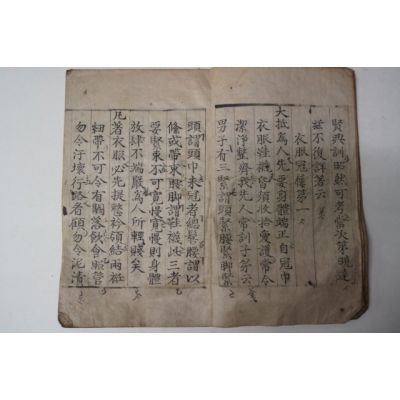 賢典訓昭然可考當次第曉達
茲不復詳著云
衣服冠履第一
大抵爲人先要身體端正自冠巾
衣服鞋襪皆須收拾愛護常令
潔淨整齊我先人常訓子弟云
男子有三緊謂頭緊腰緊脚緊
頭謂頭巾未冠者總髻腰謂以
絛或帶束腰脚謂鞋襪此三者
要緊束不可寬慢寬慢則身體
放肆不端嚴爲人所輕賤矣
凡著衣服必先提整衿領結兩衽
紐帶不可令有闕落飲食照管
勿令汙壞行路看顧勿令泥漬